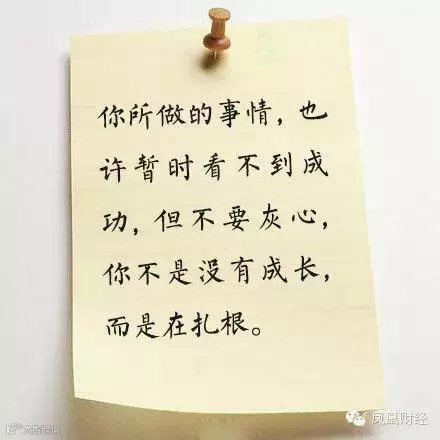 你所做的事情，也
许暂时看不到成
功，但不要灰心，
你不是没有成长，
而是在扎根。
凤凰财经